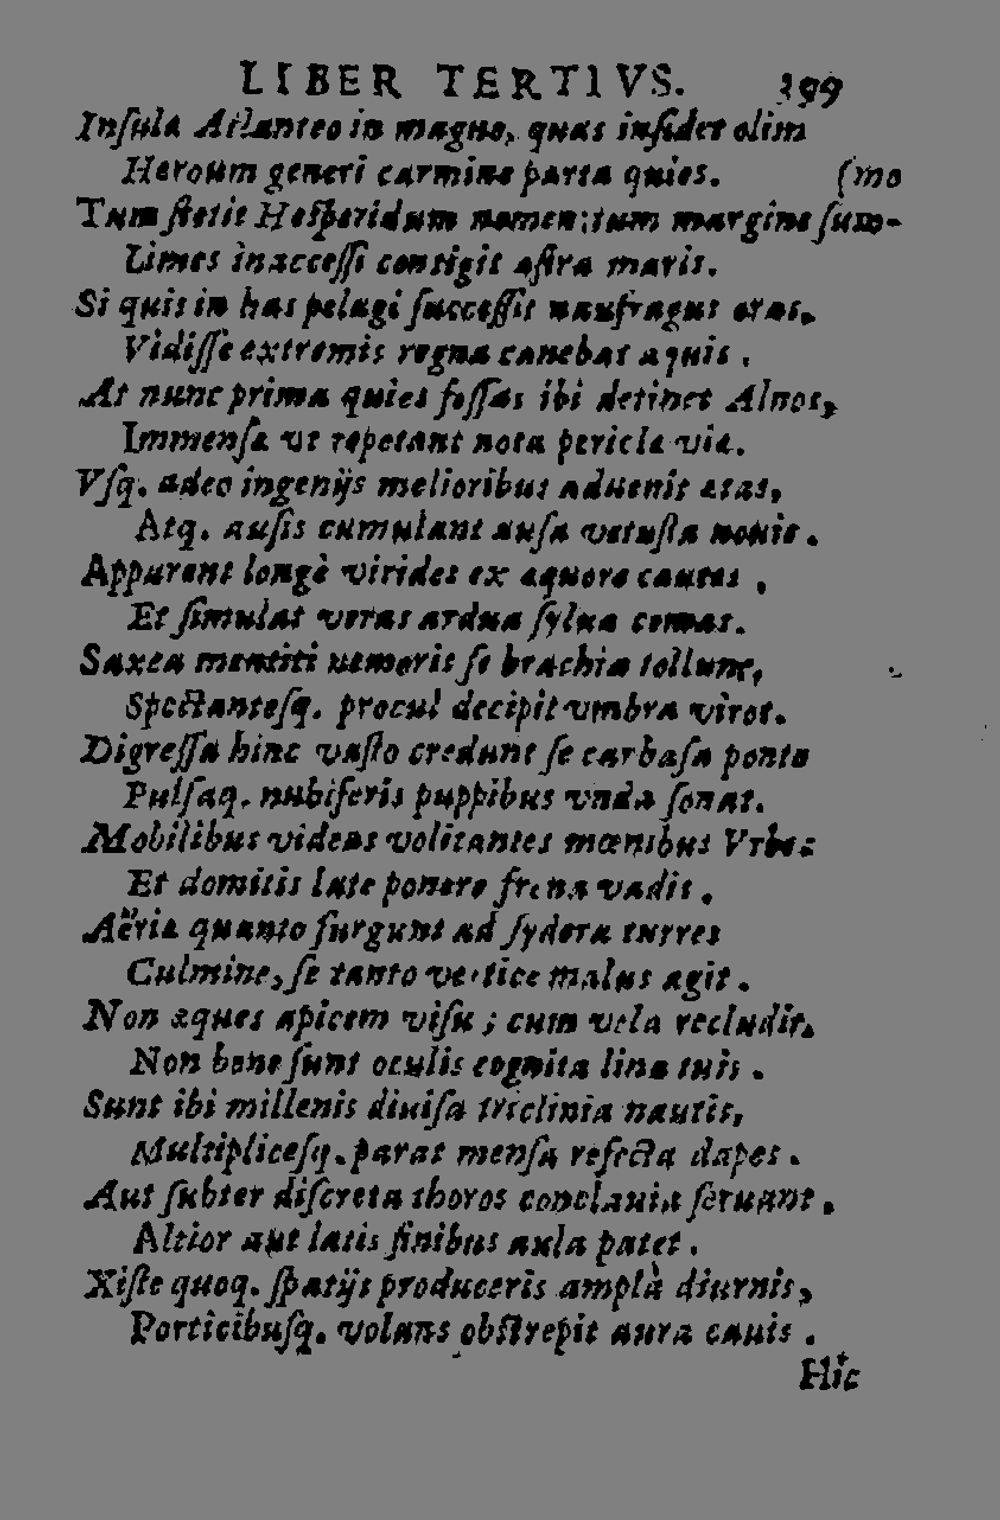 LIBER TERTIVS. 199
Inſula Atlanteo in magno, quas inſidet olim
Heroum generi carmine parta quies. (mo
Tum ſtetit Heſperidum nomen; tum margine ſum-
Limes inacceſſi contigit aſtra maris.
Si quis in has pelagi ſucceſſit naufragus oras,
Vidiſſe extremis regna canebat aquis.
At nunc prima quies feſſas ibi detinet Alnos,
Immenſæ vt repetant nota pericla viæ.
Vſq. adeo ingenijs melioribus aduenit ætas,
Atq. auſis cumulant auſa vetuſta nouis.
Apparent longè virides ex æquore cautes,
Et ſimulat veras ardua ſylua comas.
Saxea mentiti nemoris ſe brachia tollunt,
Spectanteſq. procul decipit vmbra viros.
Digreſſa hinc vaſto credunt ſe carbaſa ponto
Pulſaq. nubiferis puppibus vnda ſonat.
Mobilibus videas volitantes mœnibus Vrbes
Et domitis late ponere frena vadis.
Aëriæ quanto ſurgunt ad ſydera turres
Culmine, ſe tanto vertice malus agit.
Non æques apicem viſu; cum vela recludit,
Non bene ſunt oculis cognita lina tuis.
Sunt ibi millenis diuiſa triclinia nautis,
Multipliceſq. parat menſa refecta dapes.
Aut ſubter diſcreta thoros conclauia ſeruant.
Altior aut latis finibus aula patet.
Xiſte quoq. ſpatijs produceris amplà diurnis,
Porticibuſq. volans obſtrepit aura cauis.
Hic